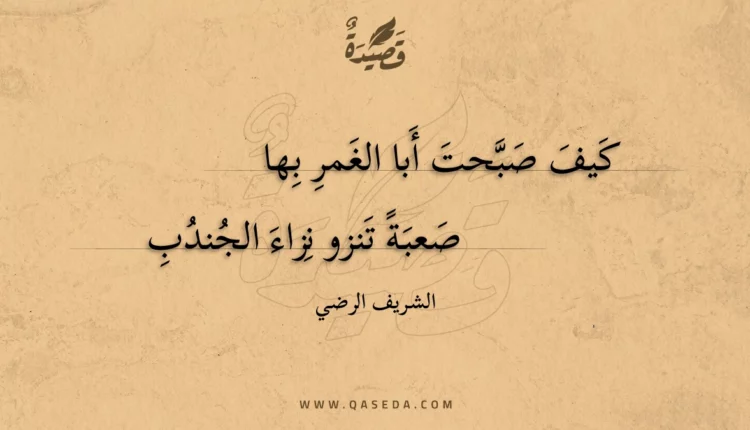 قَصِيدَةٌ
كَيفَ صَبَّحتَ أَبا الغَمرِ بِها
صَعبَةً تَنزو نِزاءَ الجُندُبِ
الشريف الرضي
WWW.QASEDA.COM